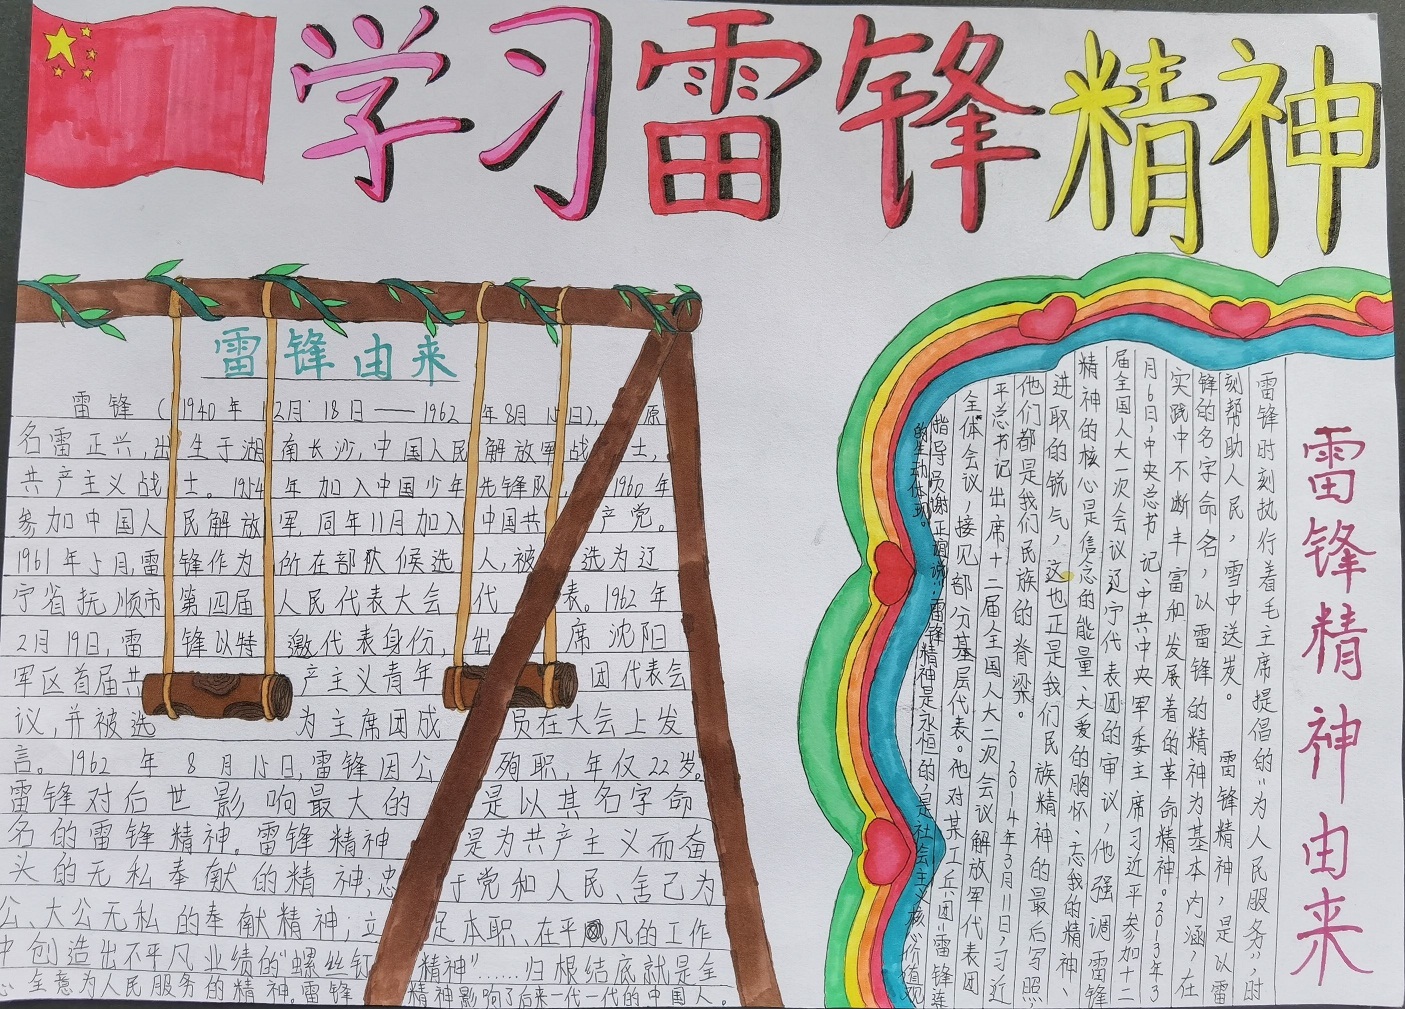 学习雷锋精神
雷锋由来
雷锋(1940年12月18日——1962年8月15日),原
名雷正兴,出生于湖南长沙,中国人民解放军战士,
共产主义战士。1954年加入中国少年先锋队,1960年
参加中国人民解放军,同年11月加入中国共产党。
1961年5月,雷锋作为所在部队候选人,被选为辽
宁省抚顺市第四届人民代表大会代表。1962年
2月19日,雷锋以特邀代表身份,出席沈阳
军区首届共产主义青年团代表会
议,并被选为主席团成员在大会上发
言。1962年8月15日,雷锋因公殉职,年仅22岁。
雷锋对后世影响最大的是以其名字命
名的雷锋精神。雷锋精神是为共产主义而奋
头的无私奉献的精神;忠于党和人民、舍己为
公、大公无私的奉献精神;立足本职、在平凡的工作
中创造出不平凡业绩的“螺丝钉精神”……归根结底就是全
心全意为人民服务的精神。雷锋精神影响了后来一代一代的中国人。
雷锋精神由来
雷锋时刻执行着毛主席提倡的“为人民服务”,时
刻帮助人民,雪中送炭。 雷锋精神,是以雷
锋的名字命名,以雷锋的精神为基本内涵,在
实践中不断丰富和发展着的革命精神。2013年3
月6日,中央总书记、中共中央军委主席习近平参加十二
届全国人大一次会议辽宁代表团的审议,他强调,雷锋
精神的核心是信念的能量、大爱的胸怀、忘我的精神、
进取的锐气,这也正是我们民族精神的最后写照,
他们都是我们民族的脊梁。 2014年3月11日,习近
平总书记出席十二届全国人大二次会议解放军代表团
全体会议,接见部分基层代表。他对某工兵团“雷锋连
指导员谢正谊说:雷锋精神是永恒的,是社会主义核心价值观
的生动体现。